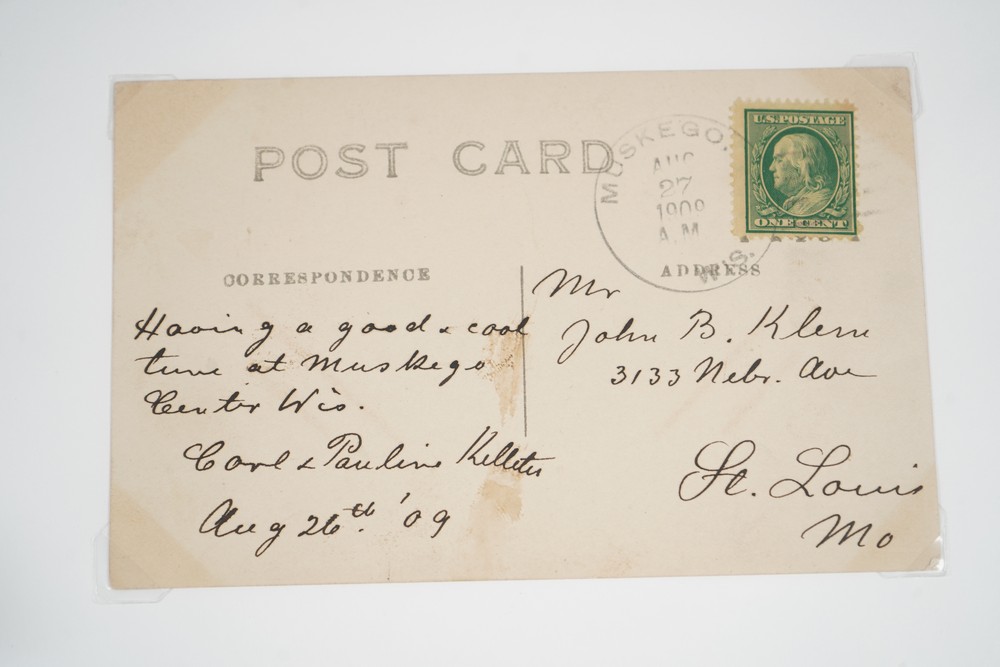 POST CARD
MUSKEGO.
AUG
27
1909
A.M.
WIS.
U.S. POSTAGE
ONE CENT
CORRESPONDENCE
ADDRESS
Having a good & cool
time at Muskego
Center Wis.
Carl & Pauline
Aug 26th. '09
Mr
John B.
3133 Nebr. Ave
St. Louis
Mo